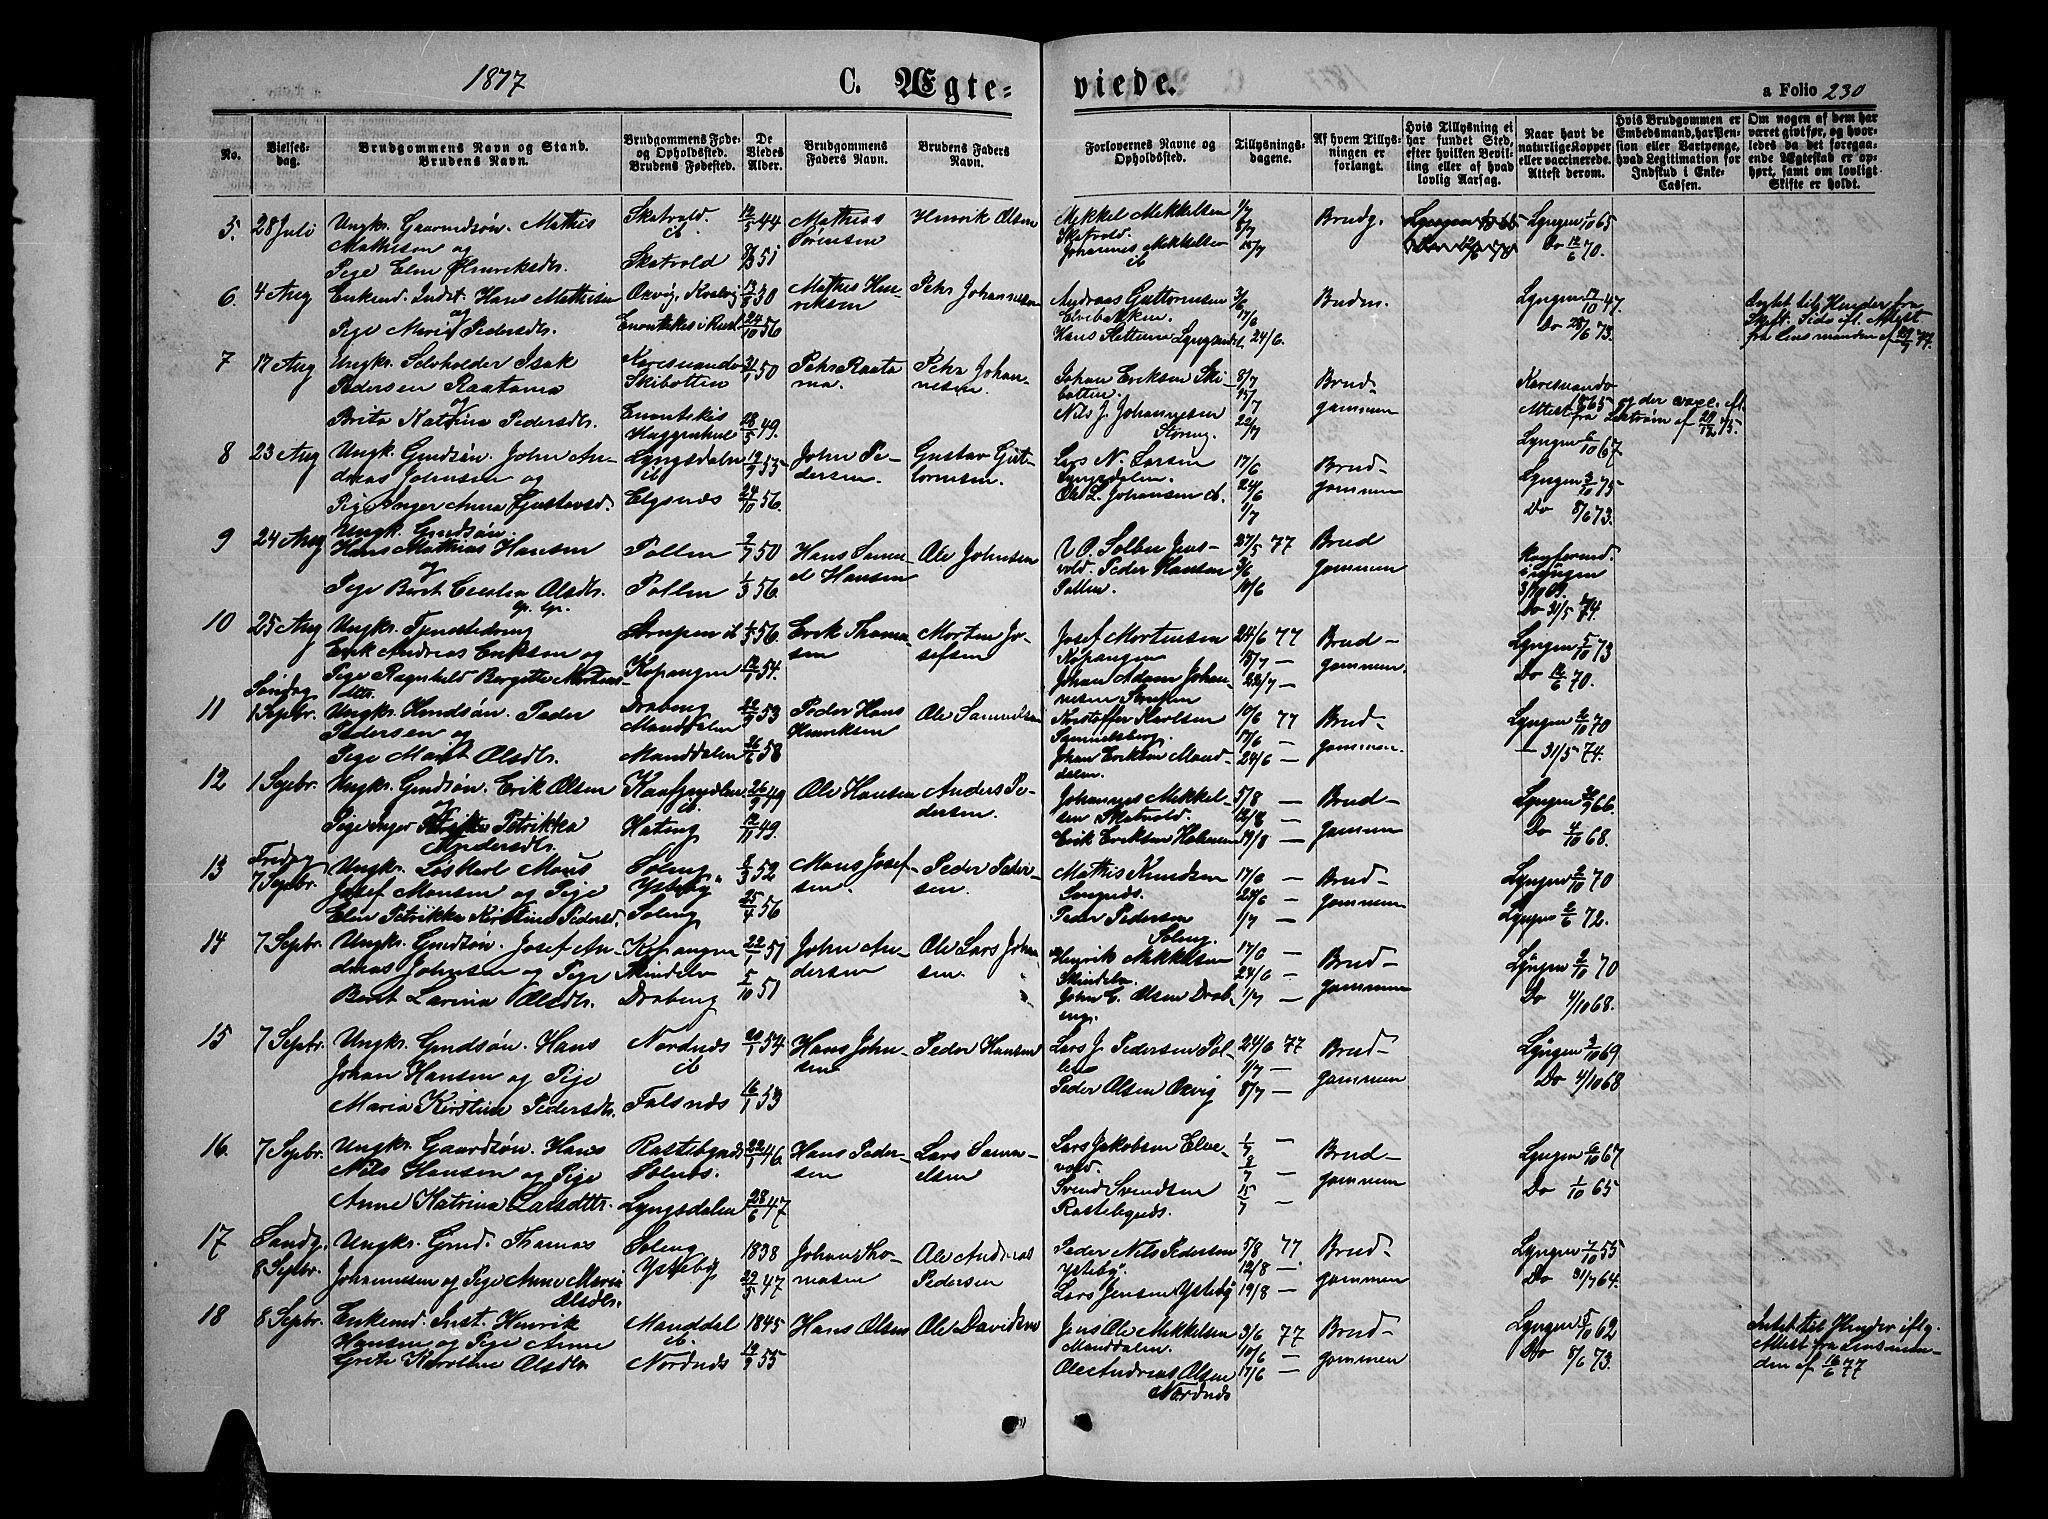 1877 C. Ægte- viede. a Folio 230
No.
Vielses-
dag.
Brudgommens Navn og Stand.
Brudens Navn.
Brudgommens Føde-
og Opholdssted.
Brudens Fødested.
De
Viedes
Alder.
Brudgommens
Faders Navn.
Brudens Faders
Navn.
Forlovernes Navne og
Opholdssted.
Tillysnings-
dagene.
Af hvem Tillys-
ningen er
forlangt.
Hvis Tillysning ei
har fundet Sted,
efter hvilken Bevil-
ling eller af hvad
lovlig Aarsag.
Naar havt de
naturlige Kopper
eller vaccinerede.
Attest derom.
Hvis Brudgommen er
Embedsmand, har Pen-
sion eller Vartpenge,
hvad Legitimation for
Indskud i Enke-
Cassen.
Om nogen af dem har
været givt før, og hvor-
ledes da det foregaa-
ende Ægteskab er op-
hørt, samt om lovligt
Skifte er holdt.
5. 28 Juli
Ungkr. Gaardsøn. Mathis
Mathisen og
Pige Elen Henriksdr.
Skatvold.
Skatvold
12/5 44
51
Mathias
Sørensen
Henrik Olsen
Mikkel Mikkelsen
Skatvold.
Johannes Mikkelsen
ib
1/7
8/7
15/7
Brudg.
Lyngen 1/10 65
Do 12/6 70.
6. 4 Aug
Enkemd. Indst. Hans Mathisen
og
Pige Maria Pedersdr.
Oxvig, Kvalvig
Enontekis i Rusl.
30
24/10 56
Mathis Hen-
riksen
Pehr Johannesen
Andreas Guttormsen
Elvebakken.
3/6
17/6
24/6.
Lyngen 47.
Do 28/6 73.
Intet til Hinder fra
Skift. Side ifl. Attest
fra Lensmanden af 77.
7 17 Aug
Ungkr. Selvholder Isak
Pedersen Raatama
og
Brita Katrina Pedersdr.
Karesuando
Skibotten
Enontekis
50
28/5 49.
Pehr Raata
ma.
Pehr Johan-
nesen.
Johan Eriksen Ski-
botten.
Nils J. Johannesen
8/7
15/7
22/7
Brud-
gommen
Karesuando
1865 og der vacc. ifl.
Attest fra af 29/12 75.
Lyngen 67
8 23 Aug
Ungk. Gmdsøn. John An-
dreas Johnsen og
Pige Inger Anna Gustavsd.
Lyngsdalen
ib
Elgsnæs
19/9 55
24/10 56.
John Pe-
dersen.
Gustav Gut-
tormsen.
Lars N. Larsen
Lyngsdalen.
Ole L. Johansen ib.
17/6
24/6
1/7
Brud-
gommen
Lyngen 3/10 75
Do 8/6 73.
9 24 Aug
Ungk. Gmdsøn.
Hans Mathias Hansen
og
Pige Berit Cecilia Olsdr.
Pollen
Pollen
2/7 50
1/3 56.
Hans Samu-
el Hansen
Ole Johnsen
Peder Hansen
Pollen.
27/5 77
3/6
10/6
Brud
gommen
Konfirmd.
i Lyngen
Do 31/5 74.
10 25 Aug
Ungkr. Tjenstedreng
Erik Andreas Eriksen og
Pige Ragnhild Bergitte Mortens-
dtr.
Strupen ib
Kopangen
56.
12/1 54.
Erik Thoma
sen
Morten Jo-
sefsen
Josef Mortensen
Kopangen
Johan Adam Johan-
nesen Strupen
24/6 77
15/7 —
22/7 —
Brud-
gommen.
Lyngen 5/10 73
Do 12/6 70.
11
Søndag
1 Sepbr.
Ungkr. Gmdsøn. Peder
Pedersen og
Pige Marit Olsdtr.
Draberg
Manddalen
Manddalen
22/9 53
26/6 58
Peder Hans
Henriksen
Ole Samuelsen
Kristoffer Karlsen
Samuelsberg.
Johan Eriksen Mand-
dalen.
10/6 77
17/6 —
24/6 —
Brud-
gommen.
Lyngen 2/10 70
— 31/5 74.
12 1 Sepbr.
Ungkr. Gmdsøn. Erik Olsen
og
Pige Inger Petrikka
Andersdr.
Kaafjorddalen
ib.
Hateng
26/9 49
12/11 49.
Ole Hansen
Anders Pe-
dersen.
Johannes Mikkel-
sen Skatvold.
Erik Eriksen
5/8 —
12/8 —
19/8 —
Brud-
gommen
Lyngen 66.
Do 4/10 68.
13
Fredag
7 Sepbr.
Ungkr. Løskarl Mons
Josef Monsen og Pige
Elen Petrikka Kirstina Pedersd.
Soleng
Ysteby
Soleng
2/3 52
25/4 56
Mons Josef-
sen.
Peder Peder-
sen.
Mathis Knudsen
Peder Pedersen
Soleng.
17/6 —
24/6 —
1/7 —
Brud-
gommen
Lyngen 2/10 70
Lyngen 2/6 72.
14 7 Sepbr.
Ungkr. Gmdsøn. Josef An-
dreas Johnsen og Pige
Berit Lavina Olsdr.
Kopangen
Skindelv
Draberg
22/1 51
5/10 51
John An-
dersen
Ole Lars Johan-
sen.
Henrik Mikkelsen
Skindelv.
John E. Olsen Drab-
eng.
17/6 —
24/6 —
1/7 —
Brud-
gommen
Lyngen 2/10 70
Do 4/10 68.
15 7 Sepbr.
Ungkr. Gmdsøn. Hans
Johan Hansen og Pige
Maria Kirstine Pedersdr.
Nordnæs
ib
Falsnæs
20/1 54
16/1 53
Hans John-
sen
Peder Hansen
Lars J. Pedersen Pol-
len
Peder Olsen Oxvig
24/6 77
1/7 —
8/7 —
Brud-
gommen
Lyngen 3/10 69
Do 4/10 68
16. 7 Sepbr.
Ungkr. Gaardsøn. Hans
Nils Hansen og Pige
Anne Katrina Larsdttr.
Rastebynæs
Lyngsdalen
22/1 46.
28/6 47
Hans Peder-
sen
Lars Samu-
elsen
Lars Jakobsen Elve-
vold.
Svend Svendsen
Rastebynæs.
1/7 —
8/7 —
15/7 —
Brud-
gommen
Lyngen 6/10 67
Do 1/10 65
17
8 Sepbr.
Ungkr. Gmd. Thomas
Johannesen og Pige Anne Maria
Olsdr.
Soleng
Ysteby
1838
29/5 47
Johan Tho-
masen
Ole Andreas
Pedersen
Peder Nils Pedersen
Ysteby.
Lars Jensen Ysteby
5/8 77
12/8 —
19/8 —
Brud-
gommen
Lyngen 7/10 55
Do 31/7 64.
18 8 Sepbr.
Enkemd. Inst. Henrik
Hansen og Pige Anne
Grete Karoline Olsdr
Manddal
ib.
Nordnæs
1845
19/9 55
Hans Olsen
Ole Davidsen
Jens Ole Mikkelsen
Manddalen.
Ole Andreas Olsen
Nordnæs
3/6 77
10/6 —
17/6 —
Brud-
gommen
Lyngen 5/10 62
Do 8/6 73.
Intet til Hinder iflg.
Attest fra Lensman-
den af 16/6 77